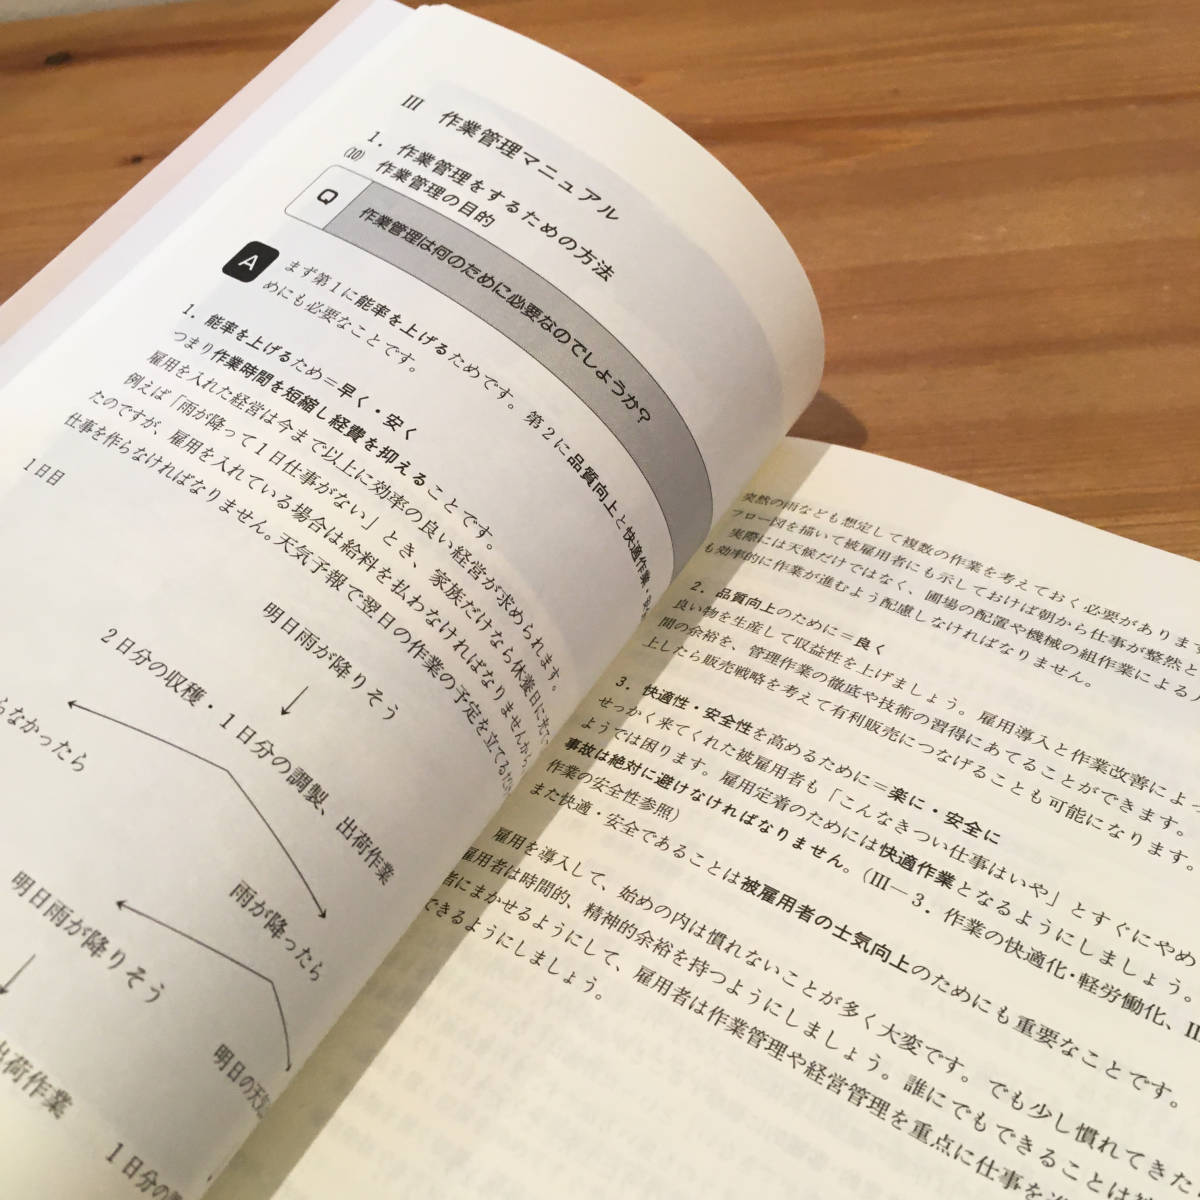 III 作業管理マニュアル
1. 作業管理をするための方法
(10) 作業管理の目的
Q 作業管理は何のために必要なのでしょうか?
A まず第1に能率を上げるためです。第2に品質向上と快適作業・
めにも必要なことです。
1. 能率を上げるため=早く・安く
つまり作業時間を短縮し経費を抑えることです。
雇用を入れた経営は今まで以上に効率の良い経営が求められます。
例えば「雨が降って1日仕事がない」とき、家族だけなら休養日に
たのですが、雇用を入れている場合は給料を払わなければなりませんから
仕事を作らなければなりません。天気予報で翌日の作業の予定を立てる
1日目
明日雨が降りそう
↓
2日分の収穫・1日分の調製、出荷作業
らなかったら
雨が降ったら
明日雨が降りそう
明日の天気
出荷作業
1日分の
突然の雨なども想定して複数の作業を考えておく必要があります
フロー図を描いて被雇用者にも示しておけば朝から仕事が整然と
実際には天候だけではなく、圃場の配置や機械の組作業による
も効率的に作業が進むよう配慮しなければなりません。
2. 品質向上のために=良く
良い物を生産して収益性を上げましょう。雇用導入と作業改善によっ
間の余裕を、管理作業の徹底や技術の習得にあてることができます。
上したら販売戦略を考えて有利販売につなげることも可能になります。
3. 快適性・安全性を高めるために=楽に・安全に
せっかく来てくれた被雇用者も「こんなきつい仕事はいや」とすぐにやめ
ようでは困ります。雇用定着のためには快適作業となるようにしましょう。
事故は絶対に避けなければなりません。(III―3. 作業の快適化・軽労働化、III
作業の安全性参照)
また快適・安全であることは被雇用者の士気向上のためにも重要なことです。
雇用を導入して、始めの内は慣れないことが多く大変です。でも少し慣れてきた
雇用者は時間的、精神的余裕を持つようにしましょう。誰にでもできることは
者にまかせるようにして、雇用者は作業管理や経営管理を重点に仕事を
できるようにしましょう。